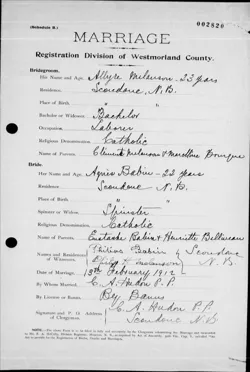 (Schedule B.)
002820
MARRIAGE
Registration Division of Westmorland County.
Bridegroom.
His Name and Age, Allyre Melanson - 23 Years
Residence, Scoudouc, N.B.
Place of Birth, " "
Bachelor or Widower, Bachelor
Occupation, Laborer
Religious Denomination, Catholic
Name of Parents, Clement Melanson & Bourque
Bride.
Her Name and Age, Agnes Babin - 22 Years
Residence, Scoudouc N.B.
Place of Birth, " "
Spinster or Widow, Spinster
Religious Denomination, Catholic
Name of Parents, Eustache Babin & Henriette Belliveau
Names and Residence of Witnesses, Babin Scoudouc
Melanson N.B
Date of Marriage, February 1912
By Whom Married, C. A. Hudon P.P.
By License or Banns, By Banns
Signature and P. O. Address of Clergyman, C. A. Hudon P.P.
Scoudouc N.B